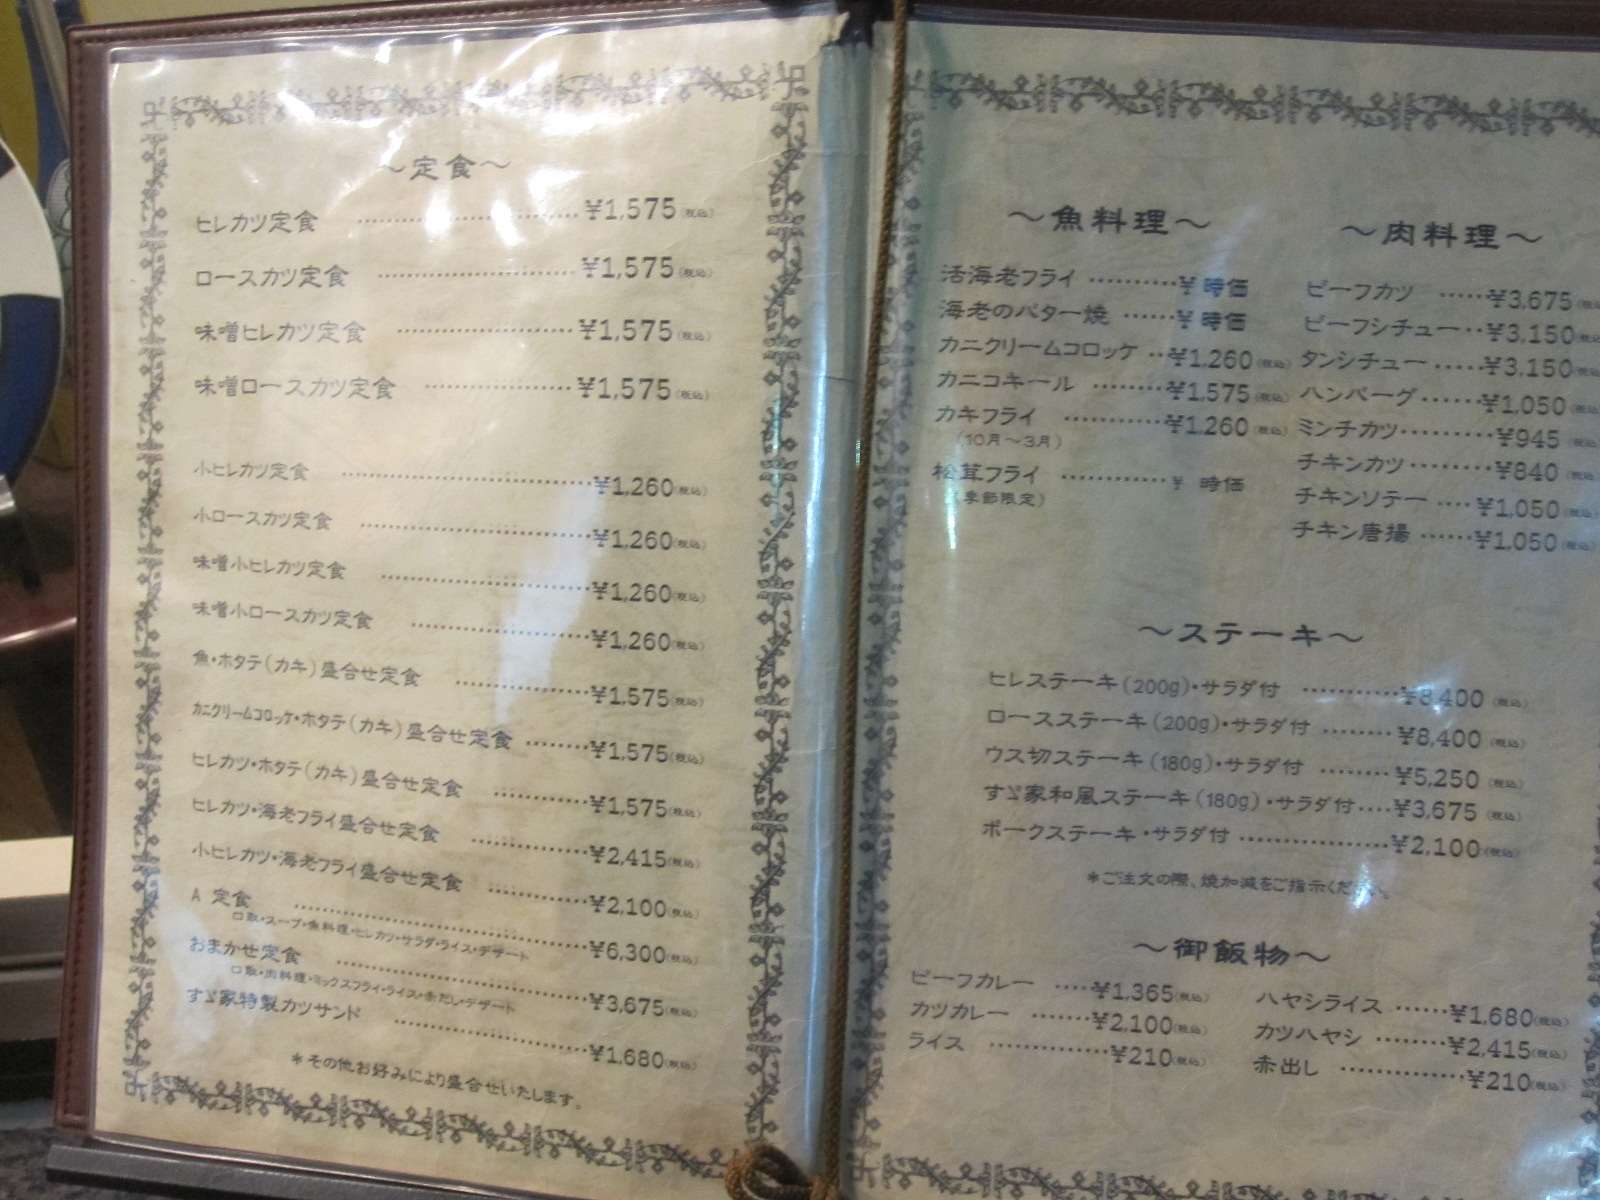 ～定食～
ヒレカツ定食 ……………… ¥1,575(税込)
ロースカツ定食 ……………… ¥1,575(税込)
味噌ヒレカツ定食 ……………… ¥1,575(税込)
味噌ロースカツ定食 ……………… ¥1,575(税込)
小ヒレカツ定食 ……………… ¥1,260(税込)
小ロースカツ定食 ……………… ¥1,260(税込)
味噌小ヒレカツ定食 ……………… ¥1,260(税込)
味噌小ロースカツ定食 ……………… ¥1,260(税込)
魚・ホタテ(カキ)盛合せ定食 ………… ¥1,575(税込)
カニクリームコロッケ・ホタテ(カキ)盛合せ定食 ……… ¥1,575(税込)
ヒレカツ・ホタテ(カキ)盛合せ定食 ………… ¥1,575(税込)
ヒレカツ・海老フライ盛合せ定食 ………… ¥2,415(税込)
小ヒレカツ・海老フライ盛合せ定食 ………… ¥2,100(税込)
A 定食 ……………… ¥6,300(税込)
口取・スープ・魚料理・ヒレカツ・サラダ・ライス・デザート
おまかせ定食 ……………… ¥3,675(税込)
口取・肉料理・ミックスフライ・ライス・赤だし・デザート
すゞ家特製カツサンド ……………… ¥1,680(税込)
＊その他お好みにより盛合せいたします。
～魚料理～
活海老フライ ………… ¥ 時価
海老のバター焼 …… ¥ 時価
カニクリームコロッケ … ¥1,260(税込)
カニコキール ……… ¥1,575(税込)
カキフライ ………… ¥1,260(税込)
(10月～3月)
松茸フライ ………… ¥ 時価
(季節限定)
～肉料理～
ビーフカツ …… ¥3,675(税込)
ビーフシチュー … ¥3,150(税込)
タンシチュー …… ¥3,150(税込)
ハンバーグ …… ¥1,050(税込)
ミンチカツ ……… ¥945 (税込)
チキンカツ ……… ¥840 (税込)
チキンソテー …… ¥1,050(税込)
チキン唐揚 …… ¥1,050(税込)
～ステーキ～
ヒレステーキ(200g)・サラダ付 ………… ¥8,400 (税込)
ロースステーキ(200g)・サラダ付 ……… ¥8,400 (税込)
ウス切ステーキ(180g)・サラダ付 ……… ¥5,250 (税込)
すゞ家和風ステーキ(180g)・サラダ付 …. ¥3,675 (税込)
ポークステーキ・サラダ付 ……………… ¥2,100(税込)
＊ご注文の際、焼加減をご指示ください。
～御飯物～
ビーフカレー …… ¥1,365(税込)
カツカレー ……… ¥2,100(税込)
ライス ………… ¥210(税込)
ハヤシライス …… ¥1,680(税込)
カツハヤシ ……… ¥2,415(税込)
赤出し ………… ¥210(税込)